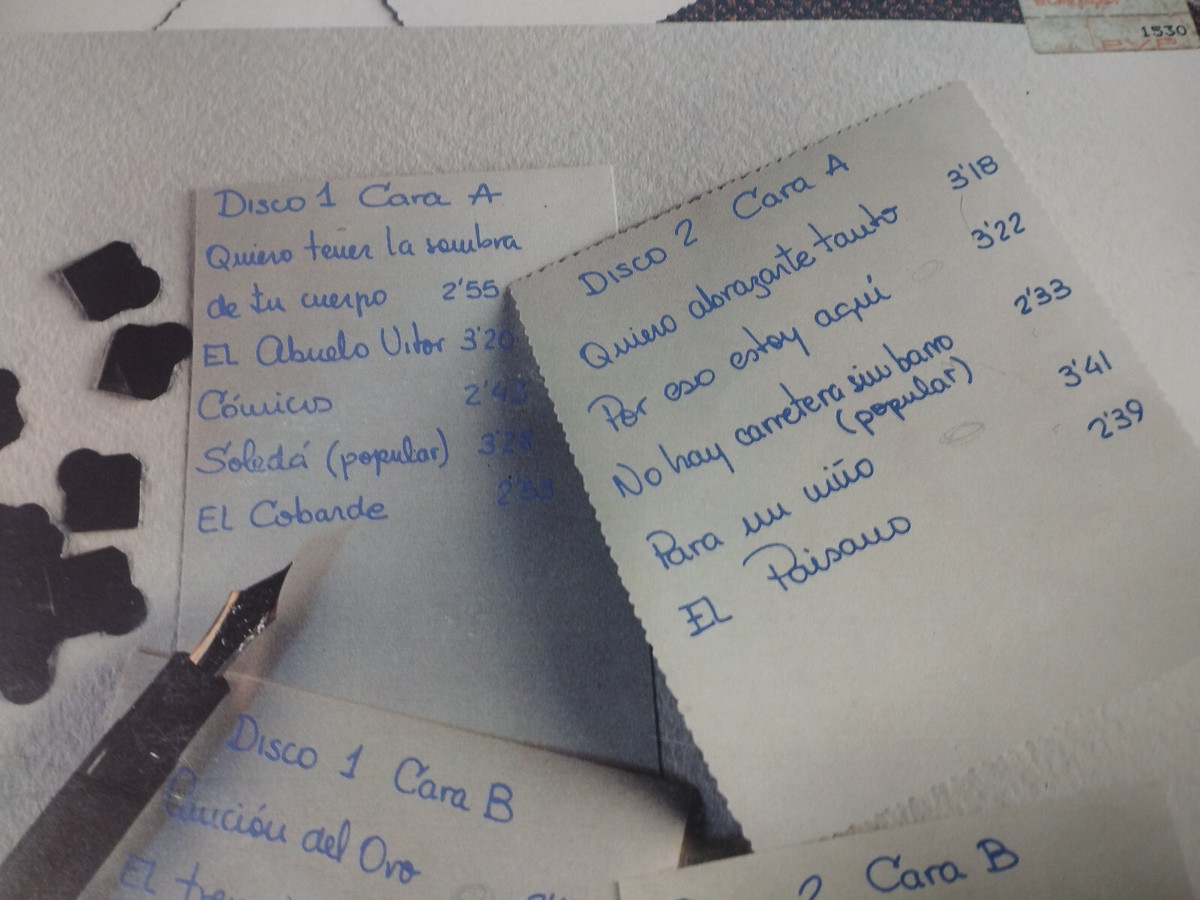 1530
PVP
Disco 1 Cara A
Quiero tener la sombra
de tu cuerpo 2'55
El Abuelo Vitor 3'20
Cómicos 2'43
Soledá (popular) 3'28
El Cobarde 2'53
Disco 2 Cara A
Quiero abrazarte tanto 3'18
Por eso estoy aquí 3'22
No hay carretera sin barro 2'33
(popular)
Para un niño 3'41
El Paisano 2'39
Disco 1 Cara B
Canción del Oro
El
2 Cara B